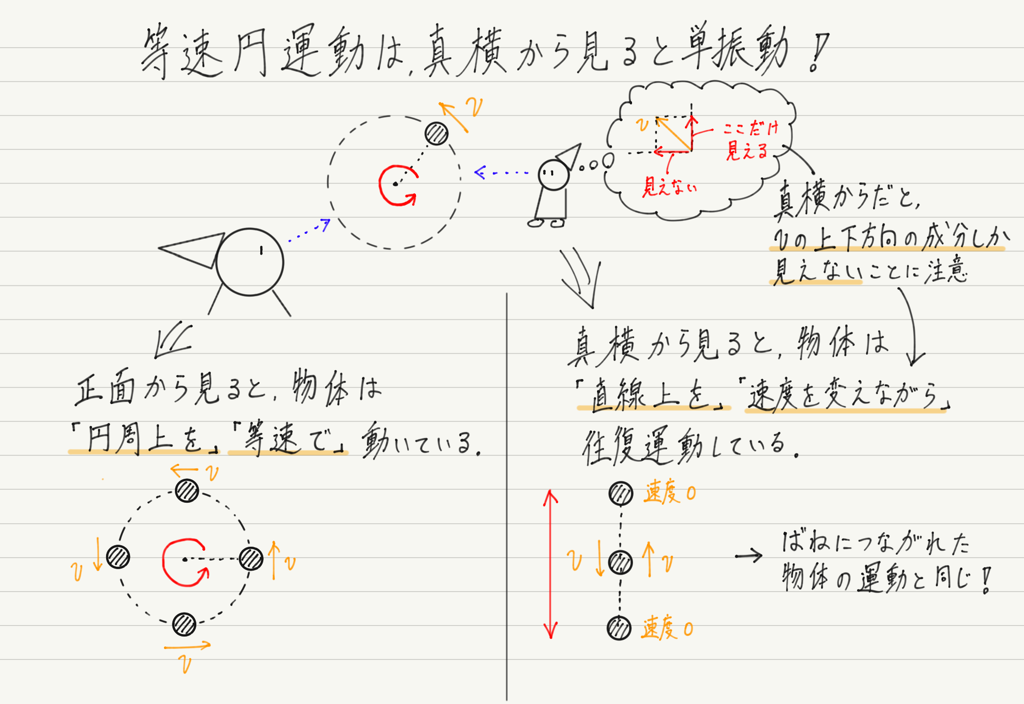 等速円運動は、真横から見ると単振動！
v
v
ここだけ
見える
見えない
真横からだと、
vの上下方向の成分しか
見えないことに注意
正面から見ると、物体は
「円周上を」「等速で」動いている。
v
v
v
v
真横から見ると、物体は
「直線上を」「速度を変えながら」
往復運動している。
速度0
v
v
速度0
→ ばねにつながれた
物体の運動と同じ！